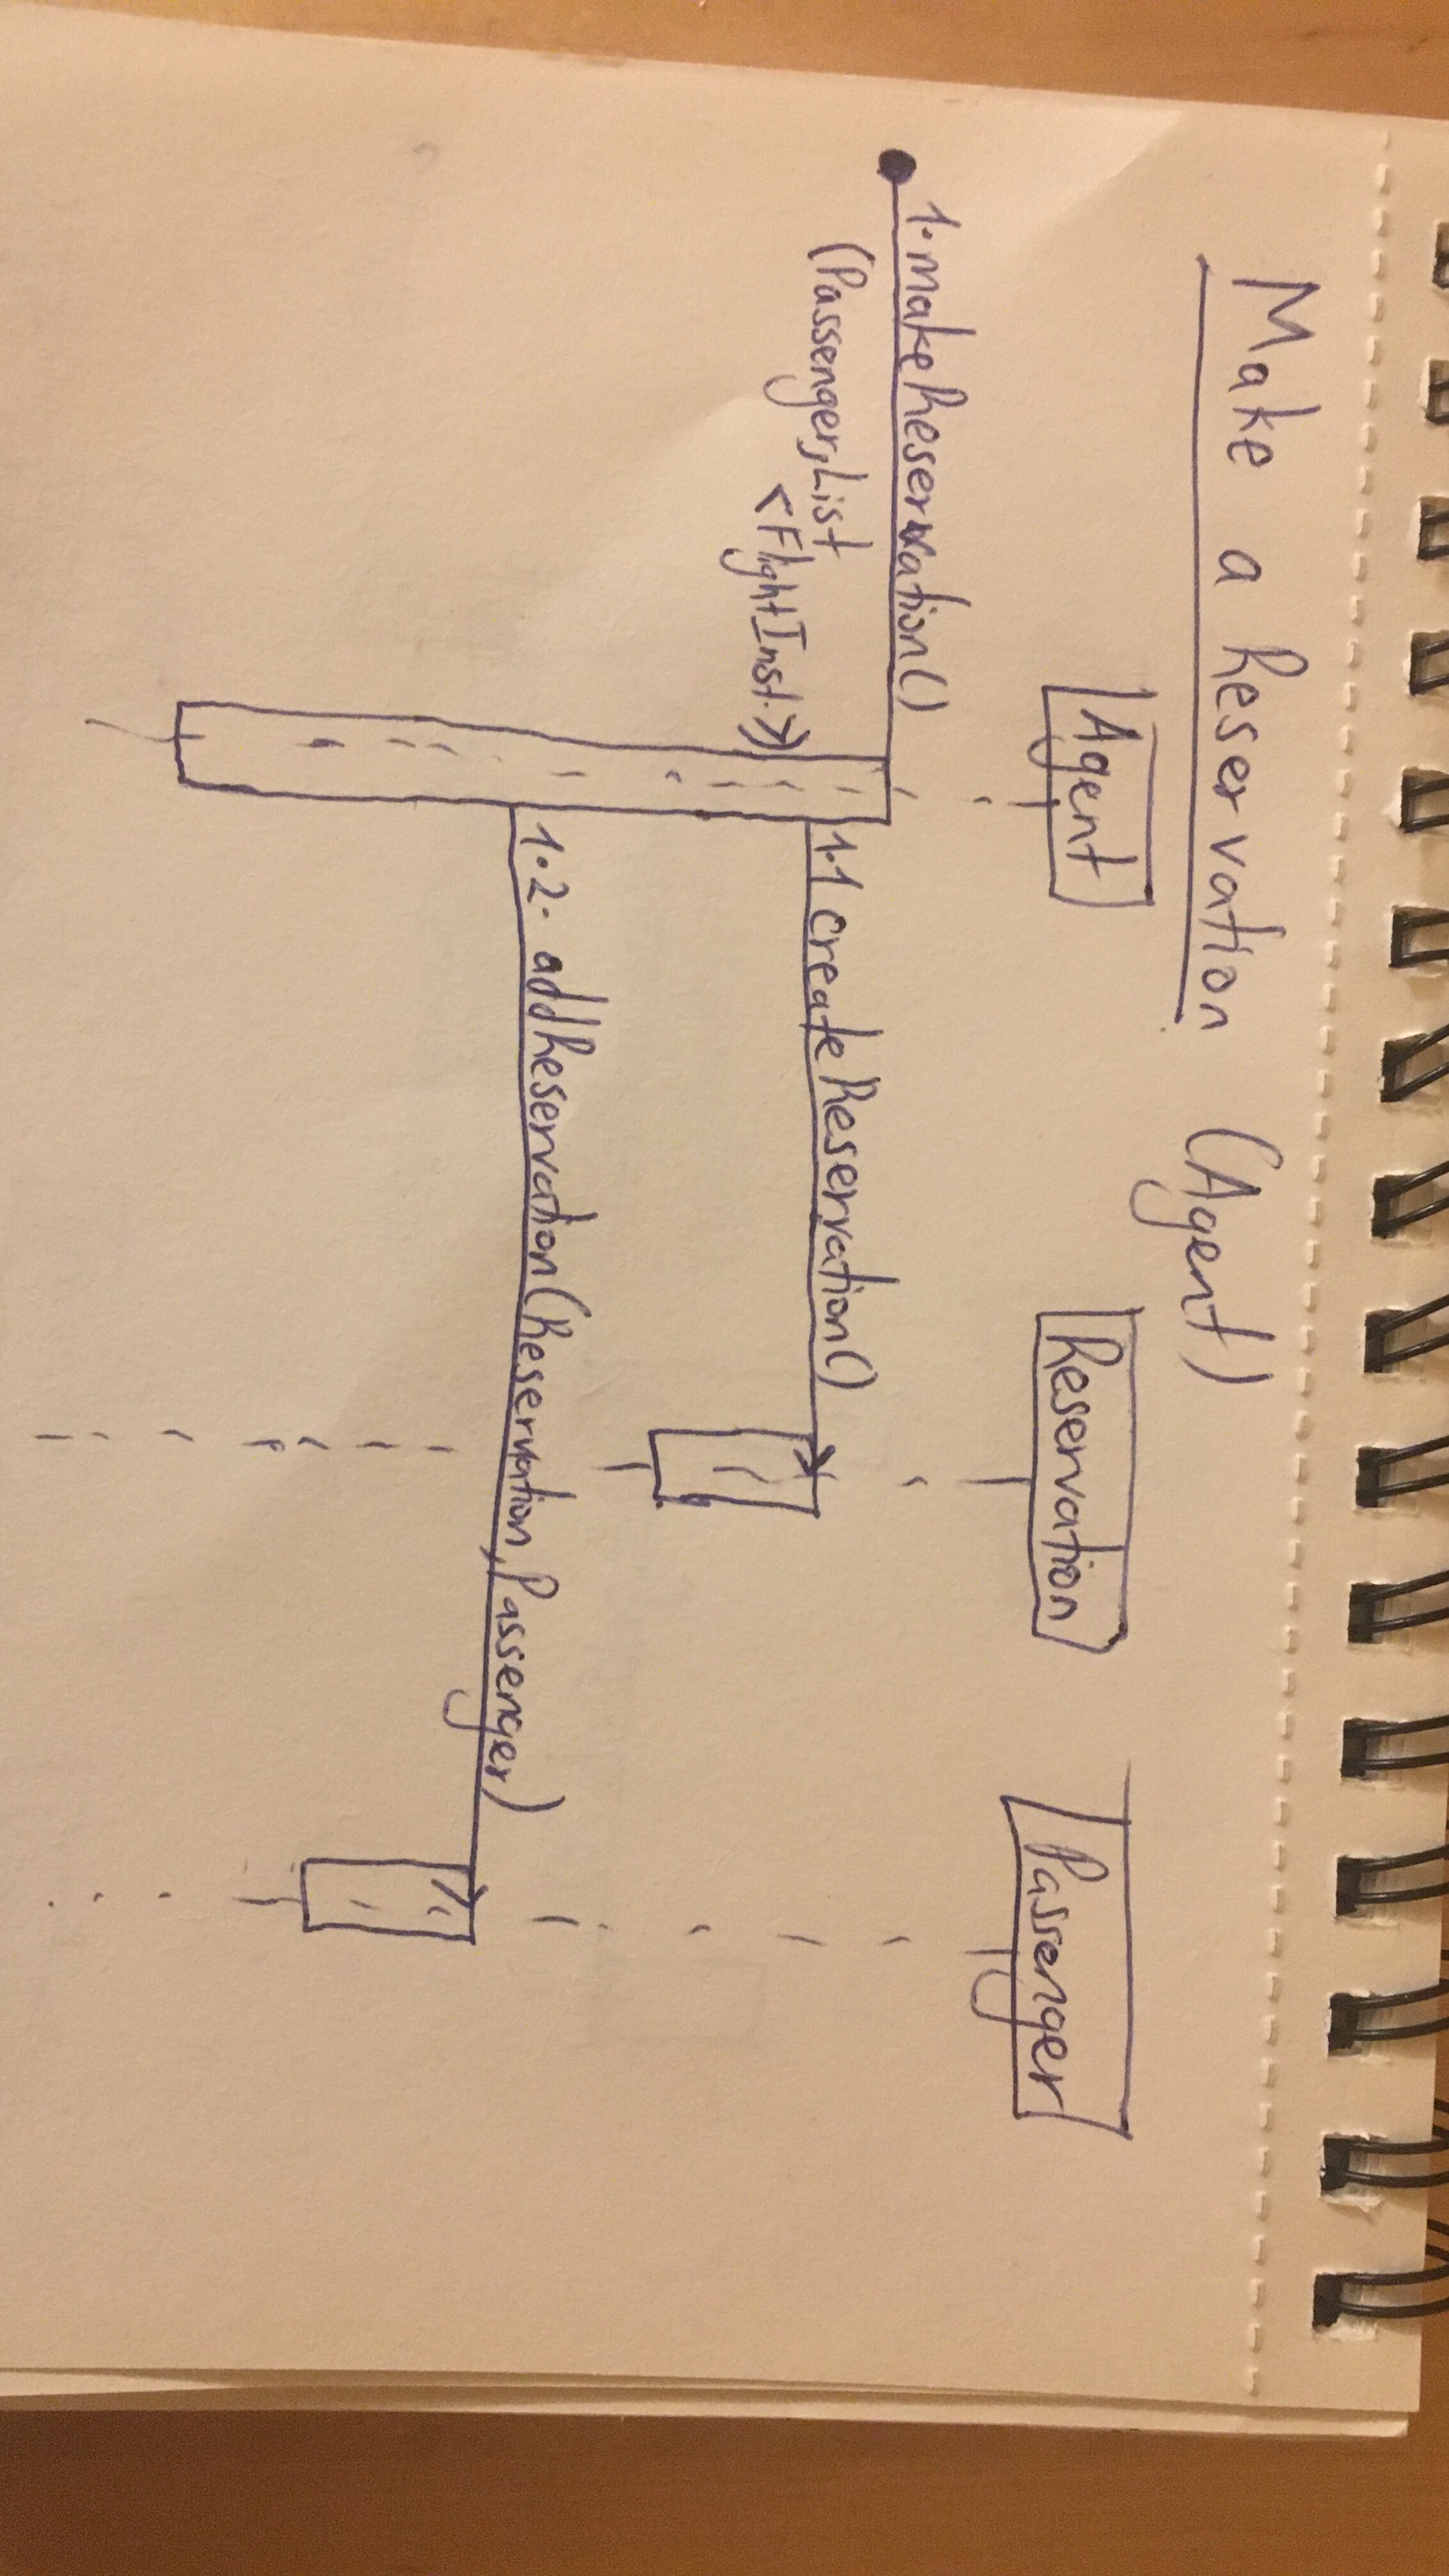 Make a Reservation (Agent)
Agent
Reservation
Passenger
1. makeReservation()
(Passenger, List
<FlightInst.>)
1.1 createReservation()
1.2. addReservation(Reservation, Passenger)